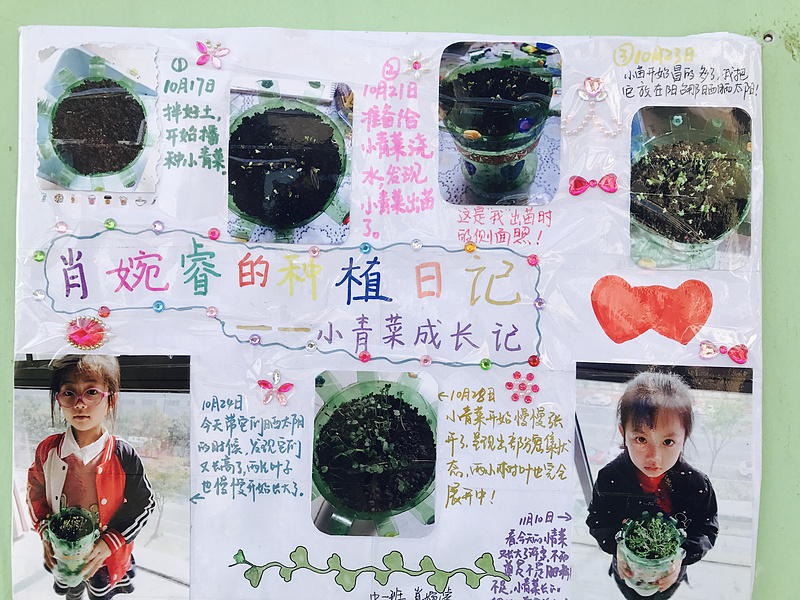 ①
10月17日
拌好土，
开始播
种小青菜。
②
10月21日
准备给
小青菜浇
水，发现
小青菜出苗
了。
这是我出苗时
的侧面照！
③10月23日
小苗开始冒的多了，我把
它放在阳台那晒晒太阳！
肖婉睿的种植日记
——小青菜成长记
10月24日
今天带它们晒太阳
的时候，发现它们
又长高了，两片叶子
也慢慢开始长大了。
10月28日
小青菜开始慢慢张
开了，呈现出部分密集状
态，两小叶也完全
展开中！
11月10日
看，今天的小青菜
又长大了许多，不
是不是
不，小青菜长的
中一班 肖婉睿